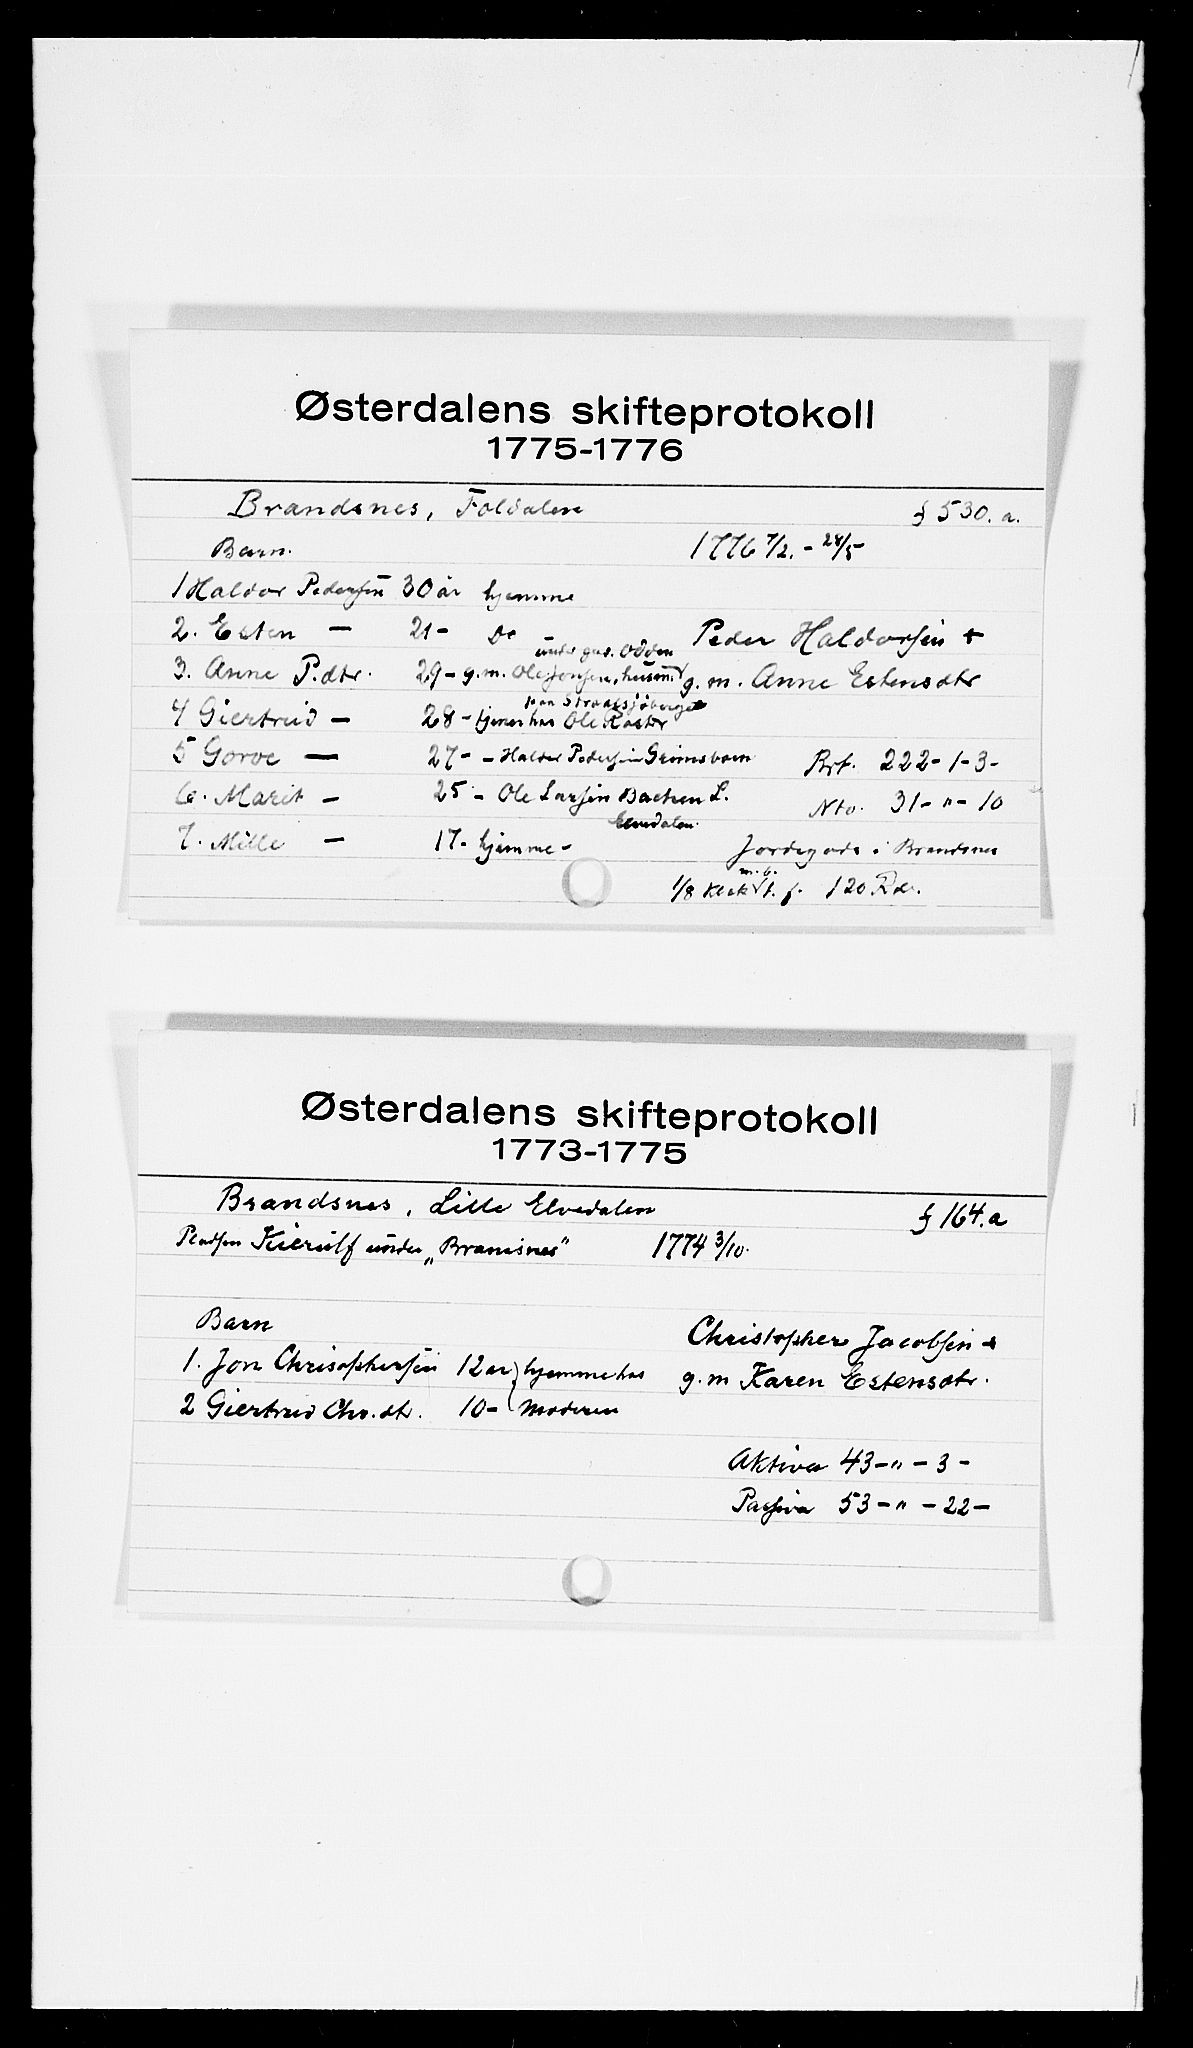 Østerdalens skifteprotokoll
1775-1776
Brandsnes, Foldalen f 530. a.
Barn. 1776 7/2. - 28/5
1 Haldor Pedersen 30 år hjemme
2. Esten — 21 - Do Peder Haldorsen +
under grd. Odden
3. Anne P.dtr. 29 - g.m. Ole Jonsen, husm. g. m. Anne Estensdtr
paa Strædsjöberget
4 Giertrud — 28 - tjener hos Ole Kaater
5 Goroe — 27 - - Haldor Pedersen Grimsboen Brt. 222 - 1 - 3 -
6. Marit — 25 - Ole Larsen Bachen L. Nto. 31 - " - 10
Elvedalen.
7. Mille — 17 - hjemme - Jordegods i Brandsnes
m. b.
1/8 t. f. 120 Rdr.
Østerdalens skifteprotokoll
1773-1775
Brandsnes, Lille Elvedalen f 164. a
Pladsen Kierulf under „Brandsnes" 1774 3/10.
Barn Christopher Jacobsen +
1. Jon Chrisophersen 12 år hjemme hos g. m Karen Estensdtr.
2 Giertrud Chr. dtr. 10 - moderen
Aktiva 43 - " - 3 -
Passiva 53 - " - 22 -